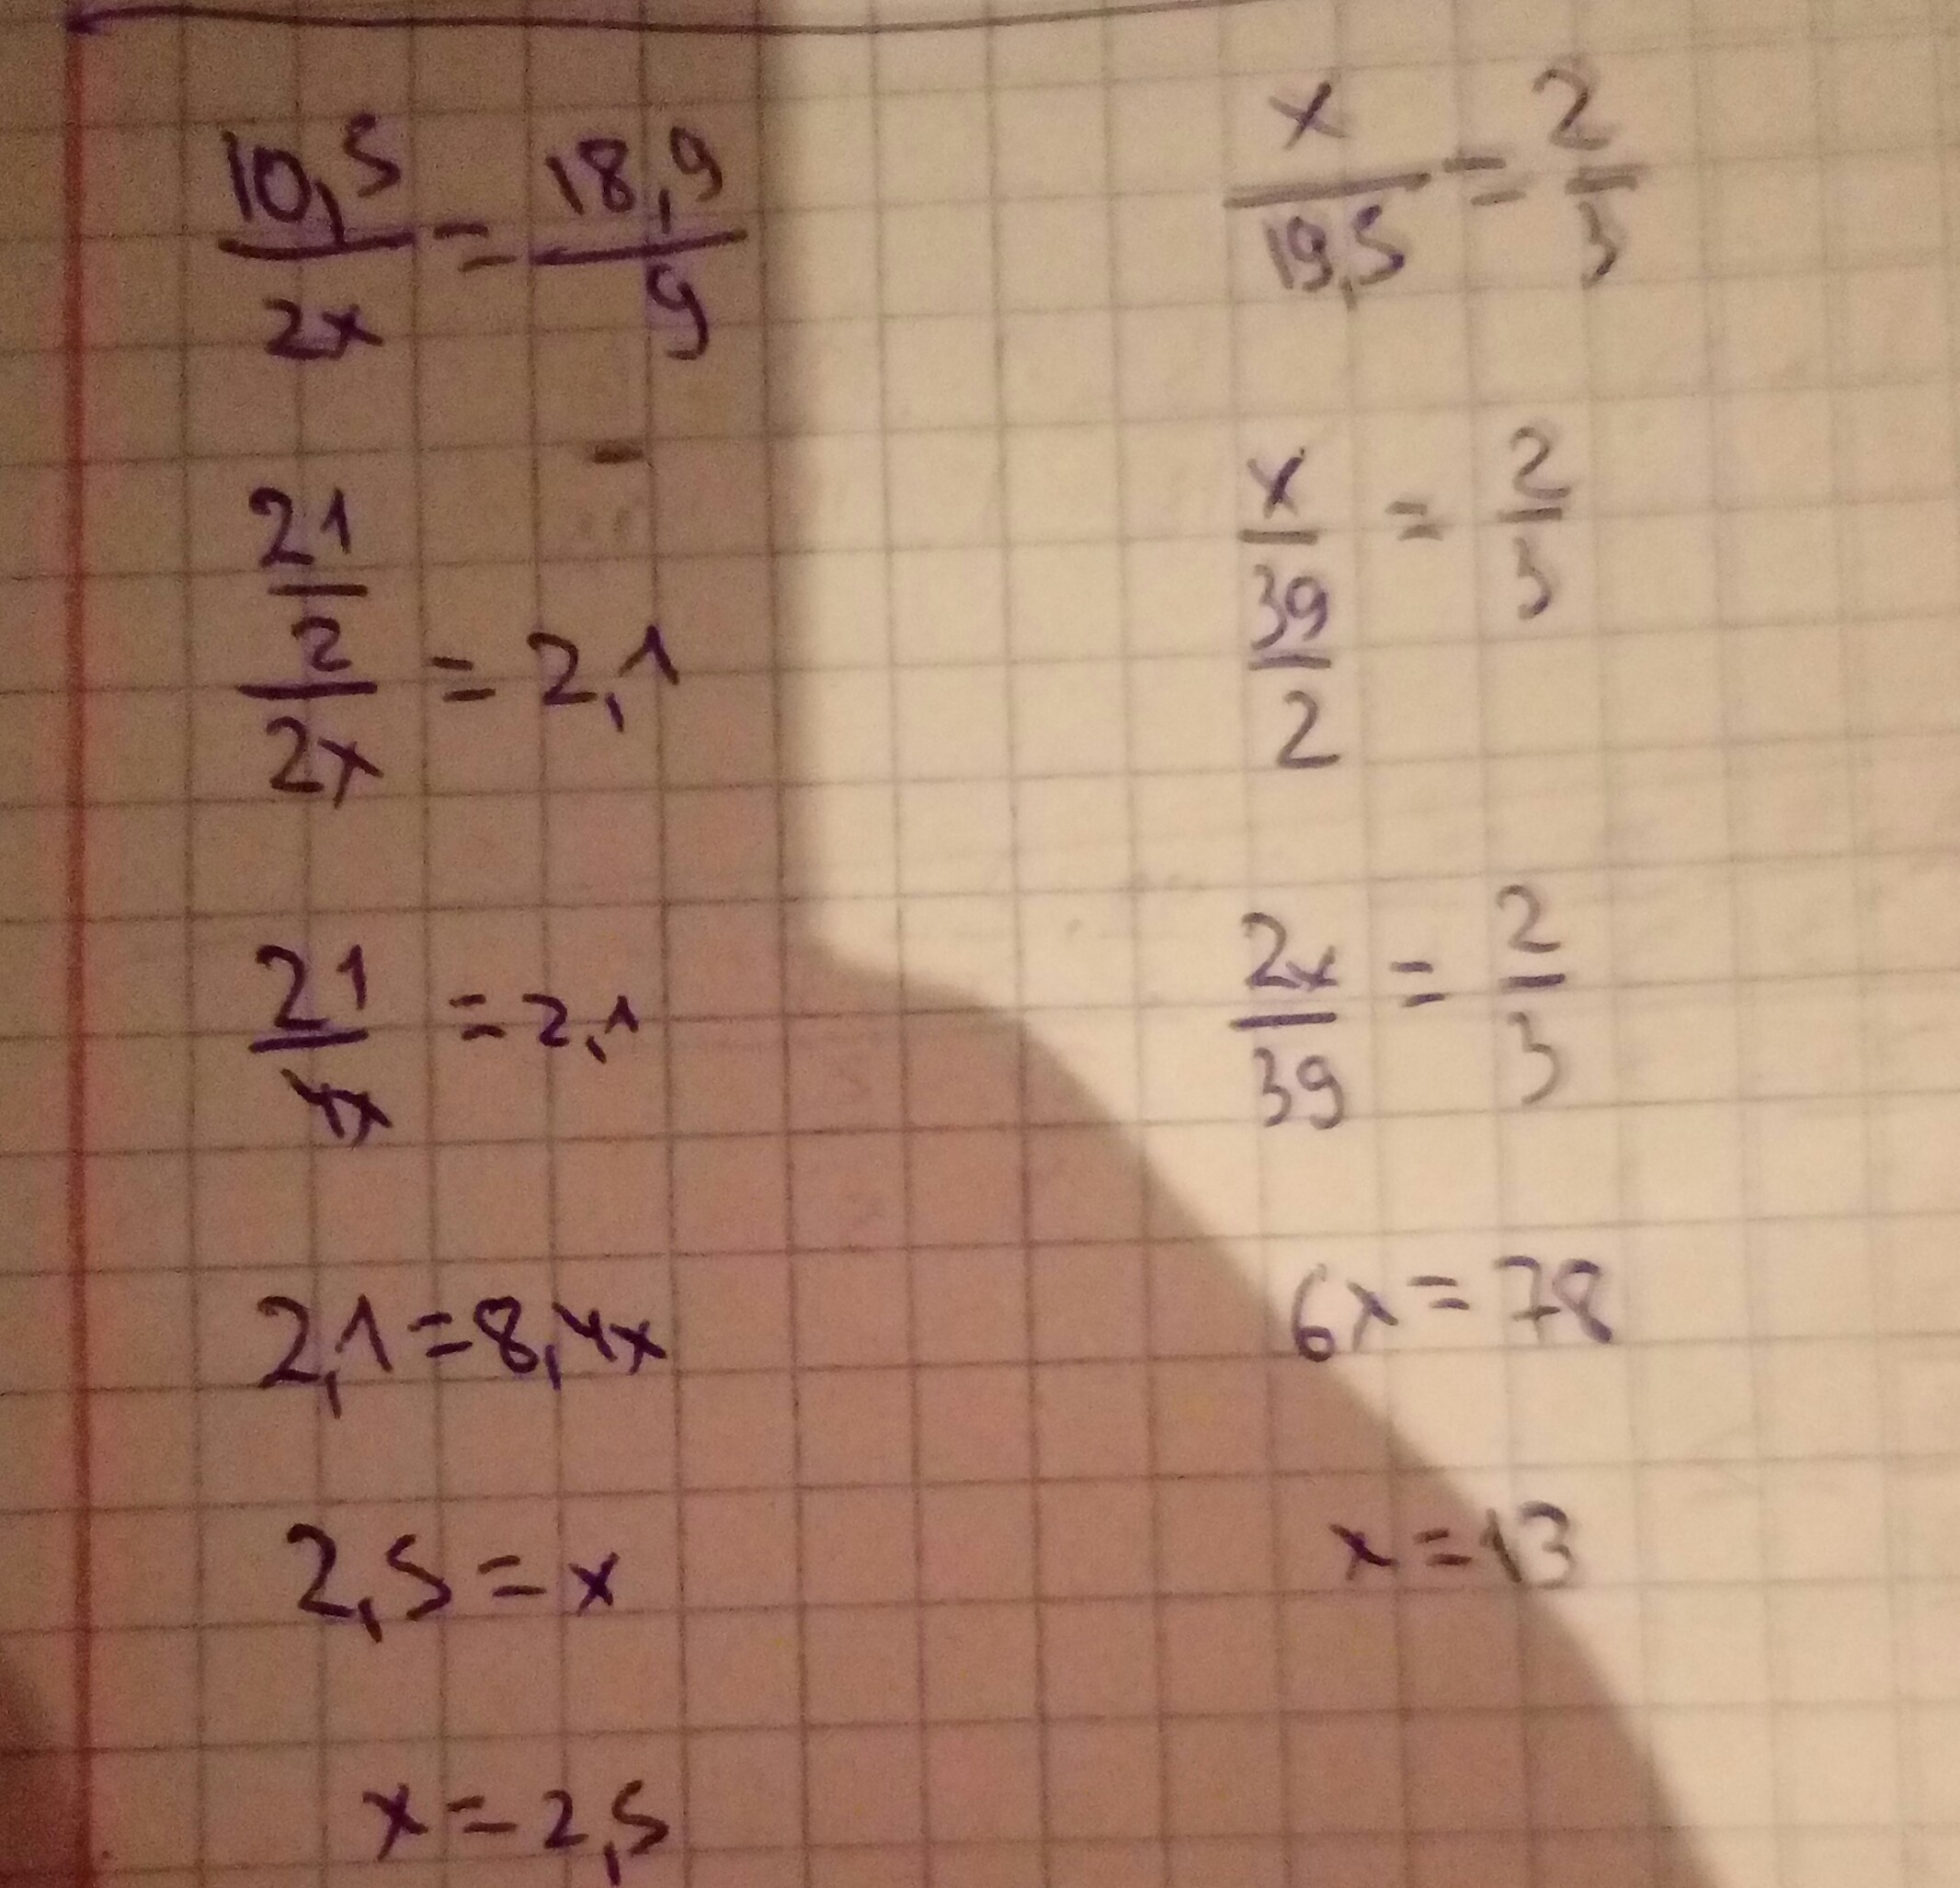 10,5/2x = 18,9/9
21/2/2x = 2,1
21/4x = 2,1
2,1 = 8,4x
2,5 = x
x = 2,5
x/19,5 = 2/3
x/39/2 = 2/3
2x/39 = 2/3
6x = 78
x = 13